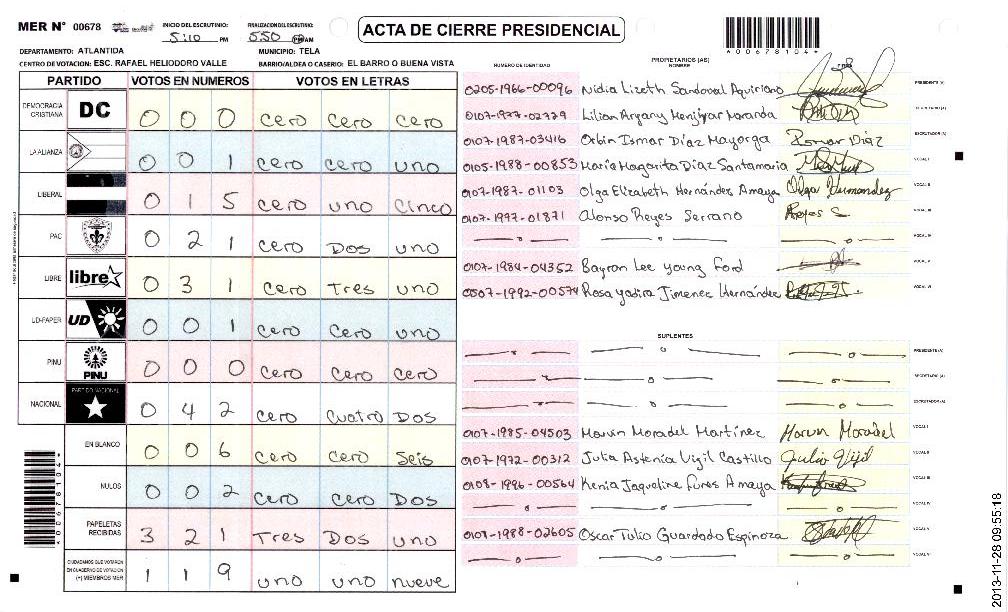 MER N° 00678
INICIO DEL ESCRUTINIO: 5:10 PM
FINALIZACION DEL ESCRUTINIO: 5:50 PM AM
ACTA DE CIERRE PRESIDENCIAL
*00678104*
DEPARTAMENTO: ATLANTIDA
MUNICIPIO: TELA
CENTRO DE VOTACION: ESC. RAFAEL HELIODORO VALLE
BARRIO/ALDEA O CASERIO: EL BARRO O BUENA VISTA
PARTIDO VOTOS EN NUMEROS VOTOS EN LETRAS
DEMOCRACIA CRISTIANA DC 0 0 0 cero cero cero
LA ALIANZA 0 0 1 cero cero uno
LIBERAL 0 1 5 cero uno cinco
PAC 0 2 1 cero Dos uno
LIBRE libre 0 3 1 cero Tres uno
UD-FAPER UD 0 0 1 cero cero uno
PINU PINU 0 0 0 cero cero cero
NACIONAL PARTIDO NACIONAL 0 4 2 cero cuatro Dos
EN BLANCO 0 0 6 cero cero Seis
NULOS 0 0 2 cero cero Dos
PAPELETAS RECIBIDAS 3 2 1 Tres Dos uno
CIUDADANOS QUE VOTARON EN CUADERNO DE VOTACION (+) MIEMBROS MER 1 1 9 uno uno nueve
*00678104*
PROPIETARIOS (AS)
NUMERO DE IDENTIDAD NOMBRE FIRMA
0205-1966-00096 Nidia Lizeth Sandoval Aquiriano PRESIDENTE (A)
0107-1977-02779 Lilian Argany Menjivar Maranda SECRETARIO (A)
0107-1987-03416 Orbin Ismar Díaz Mayorga Ismar Díaz ESCRUTADOR (A)
0105-1988-00853 María Magarita Díaz Santamaria VOCAL I
0107-1987-01103 Olga Elizabeth Hernández Amaya Olga Hernandez VOCAL II
0107-1977-01871 Alonso Reyes Serrano Reyes S. VOCAL III
VOCAL IV
0107-1984-04352 Bayron Lee young Ford VOCAL V
0507-1992-00574 Rosa yadira Jimenez Hernández VOCAL VI
SUPLENTES
PRESIDENTE (A)
SECRETARIO (A)
ESCRUTADOR (A)
0107-1985-04503 Marvin Moradel Martínez Marvin Moradel VOCAL I
0107-1972-00312 Julia Astenia Vigil Castillo Julia Vijil VOCAL II
0108-1996-00564 Kenia Jaqueline Funes Amaya VOCAL III
VOCAL IV
0107-1988-02605 Oscar Tulio Guardado Espinoza VOCAL V
VOCAL VI
2013-11-28 09:55:18